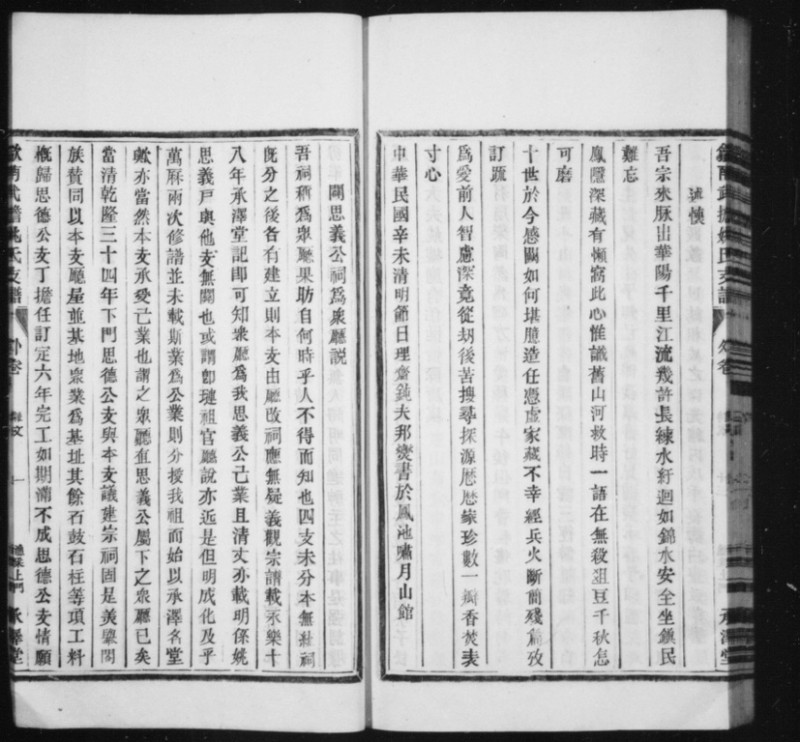 述懷
吾宗來脉出華陽千里江流幾許長練水紆迴如錦水安全坐鎮民
難忘
鳳隱深藏有懶窩此心惟識舊山河救時一語在無殺俎豆千秋怎
可磨
十世於今感闕如何堪臆造任憑虛家藏不幸經兵火斷簡殘篇攷
訂疏
爲愛前人智慮深竟從刧後苦搜尋探源厯厯綠珍數一瓣香焚表
寸心
中華民國辛未清明節日理齋鈍夫邦燮書於鳳池嘯月山館
歙南武擔姚氏支譜 外卷 雜文 一 承澤堂
闢思義公祠爲衆廳説
吾祠稱爲衆廳果昉自何時乎人不得而知也四支未分本無社祠
既分之後各有建立則本支由廳改祠應無疑義觀宗譜載永樂十
八年承澤堂記即可知衆廳爲我思義公己業且清丈亦載明係姚
思義戶與他支無關也或謂卽璉祖官廳說亦近是但明成化及乎
萬厤兩次修譜並未載斯業爲公業則分授我祖而始以承澤名堂
歟亦當然本支承愛己業也謂之衆廳隹思義公屬下之衆廳已矣
當清乾隆三十四年下門思德公支與本支議建宗祠固是美舉閤
族贊同以本支廳屋並基地衆業爲基址其餘石鼓石柱等項工料
概歸思德公支丁擔任訂定六年完工如期滿不成思德公支情願
上門 承澤堂